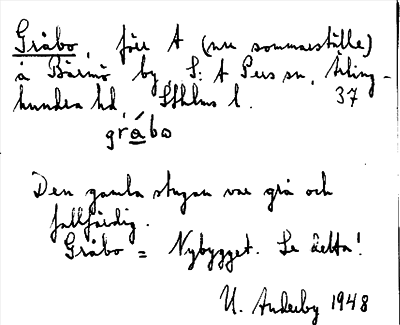 Gråbo, förr t (nu sommarställe)
å Bärmö by, S:t Pers sn, Erling-
hundra hd, Sthlms l. 37
gråbo
Den gamla stugan var grå och
fallfärdig.
Gråbo = Nybygget. Se detta!
U. Anderby 1948